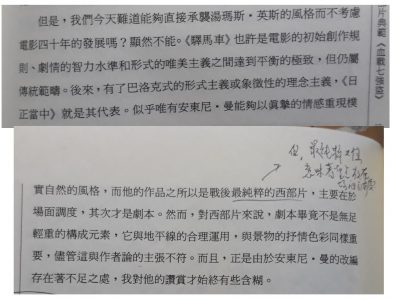 片典範《血戰七強盜》
但是，我們今天難道能夠直接承襲湯瑪斯·英斯的風格而不考慮
電影四十年的發展嗎？顯然不能。《驛馬車》也許是電影的初始創作規
則、劇情的智力水準和形式的唯美主義之間達到平衡的極致，但仍屬
傳統範疇。後來，有了巴洛克式的形式主義或象徵性的理念主義，《日
正當中》就是其代表。似乎唯有安東尼·曼能夠以真摯的情感重現樸
但，最純粹
實自然的風格，而他的作品之所以是戰後最純粹的西部片，主要在於
場面調度，其次才是劇本。然而，對西部片來說，劇本畢竟不是無足
輕重的構成元素，它與地平線的合理運用，與景物的抒情色彩同樣重
要，儘管這與作者論的主張不符。而且，正是由於安東尼·曼的改編
存在著不足之處，我對他的讚賞才始終有些含糊。